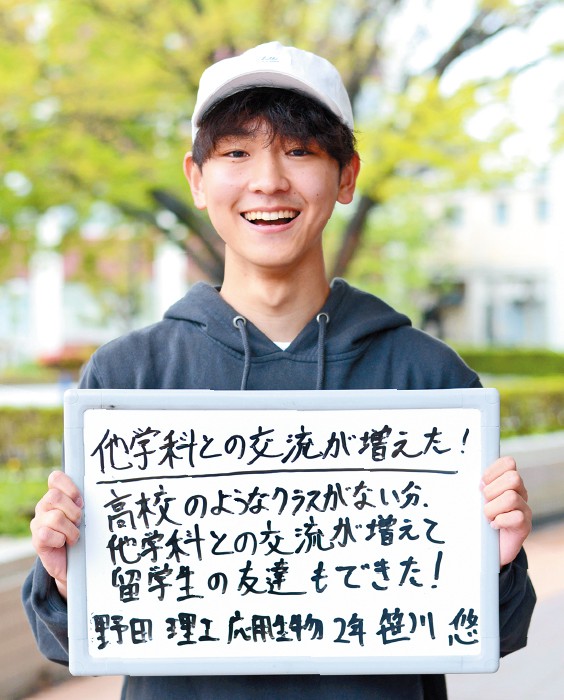 他学科との交流が増えた!
高校のようなクラスがない分、
他学科との交流が増えて
留学生の友達もできた!
野田 理工 応用生物 2年 笹川 悠